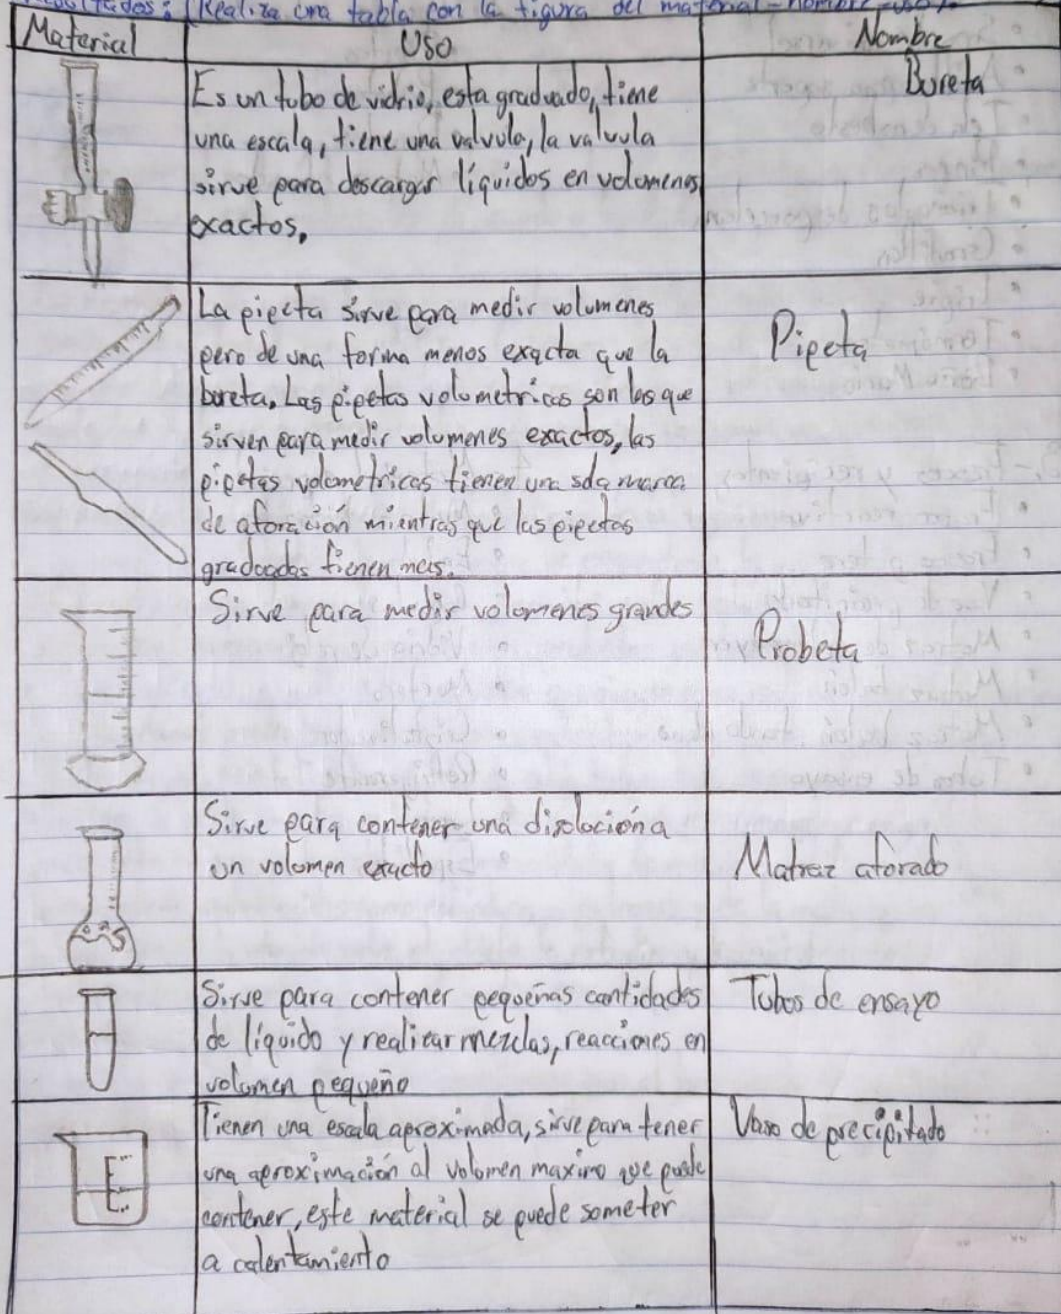 Resultados: (Realiza una tabla con la figura del material-nombre-uso).
Material Uso Nombre
Es un tubo de vidrio, esta graduado, tiene
una escala, tiene una valvula, la valvula
sirve para descargar líquidos en volumenes
exactos.
Bureta
La pipeta sirve para medir volumenes
pero de una forma menos exacta que la
bureta. Las pipetas volumetricas son las que
sirven para medir volumenes exactos, las
pipetas volumetricas tienen una sola marca
de aforación mientras que las pipetas
graduadas tienen mas.
Pipeta
Sirve para medir volumenes grandes
Probeta
Sirve para contener una disolución a
un volumen exacto
Matraz aforado
Sirve para contener pequeñas cantidades
de líquido y realizar mezclas, reacciones en
volumen pequeño
Tubos de ensayo
Tienen una escala aproximada, sirve para tener
una aproximación al volumen maximo que puede
contener, este material se puede someter
a calentamiento
Vaso de precipitado